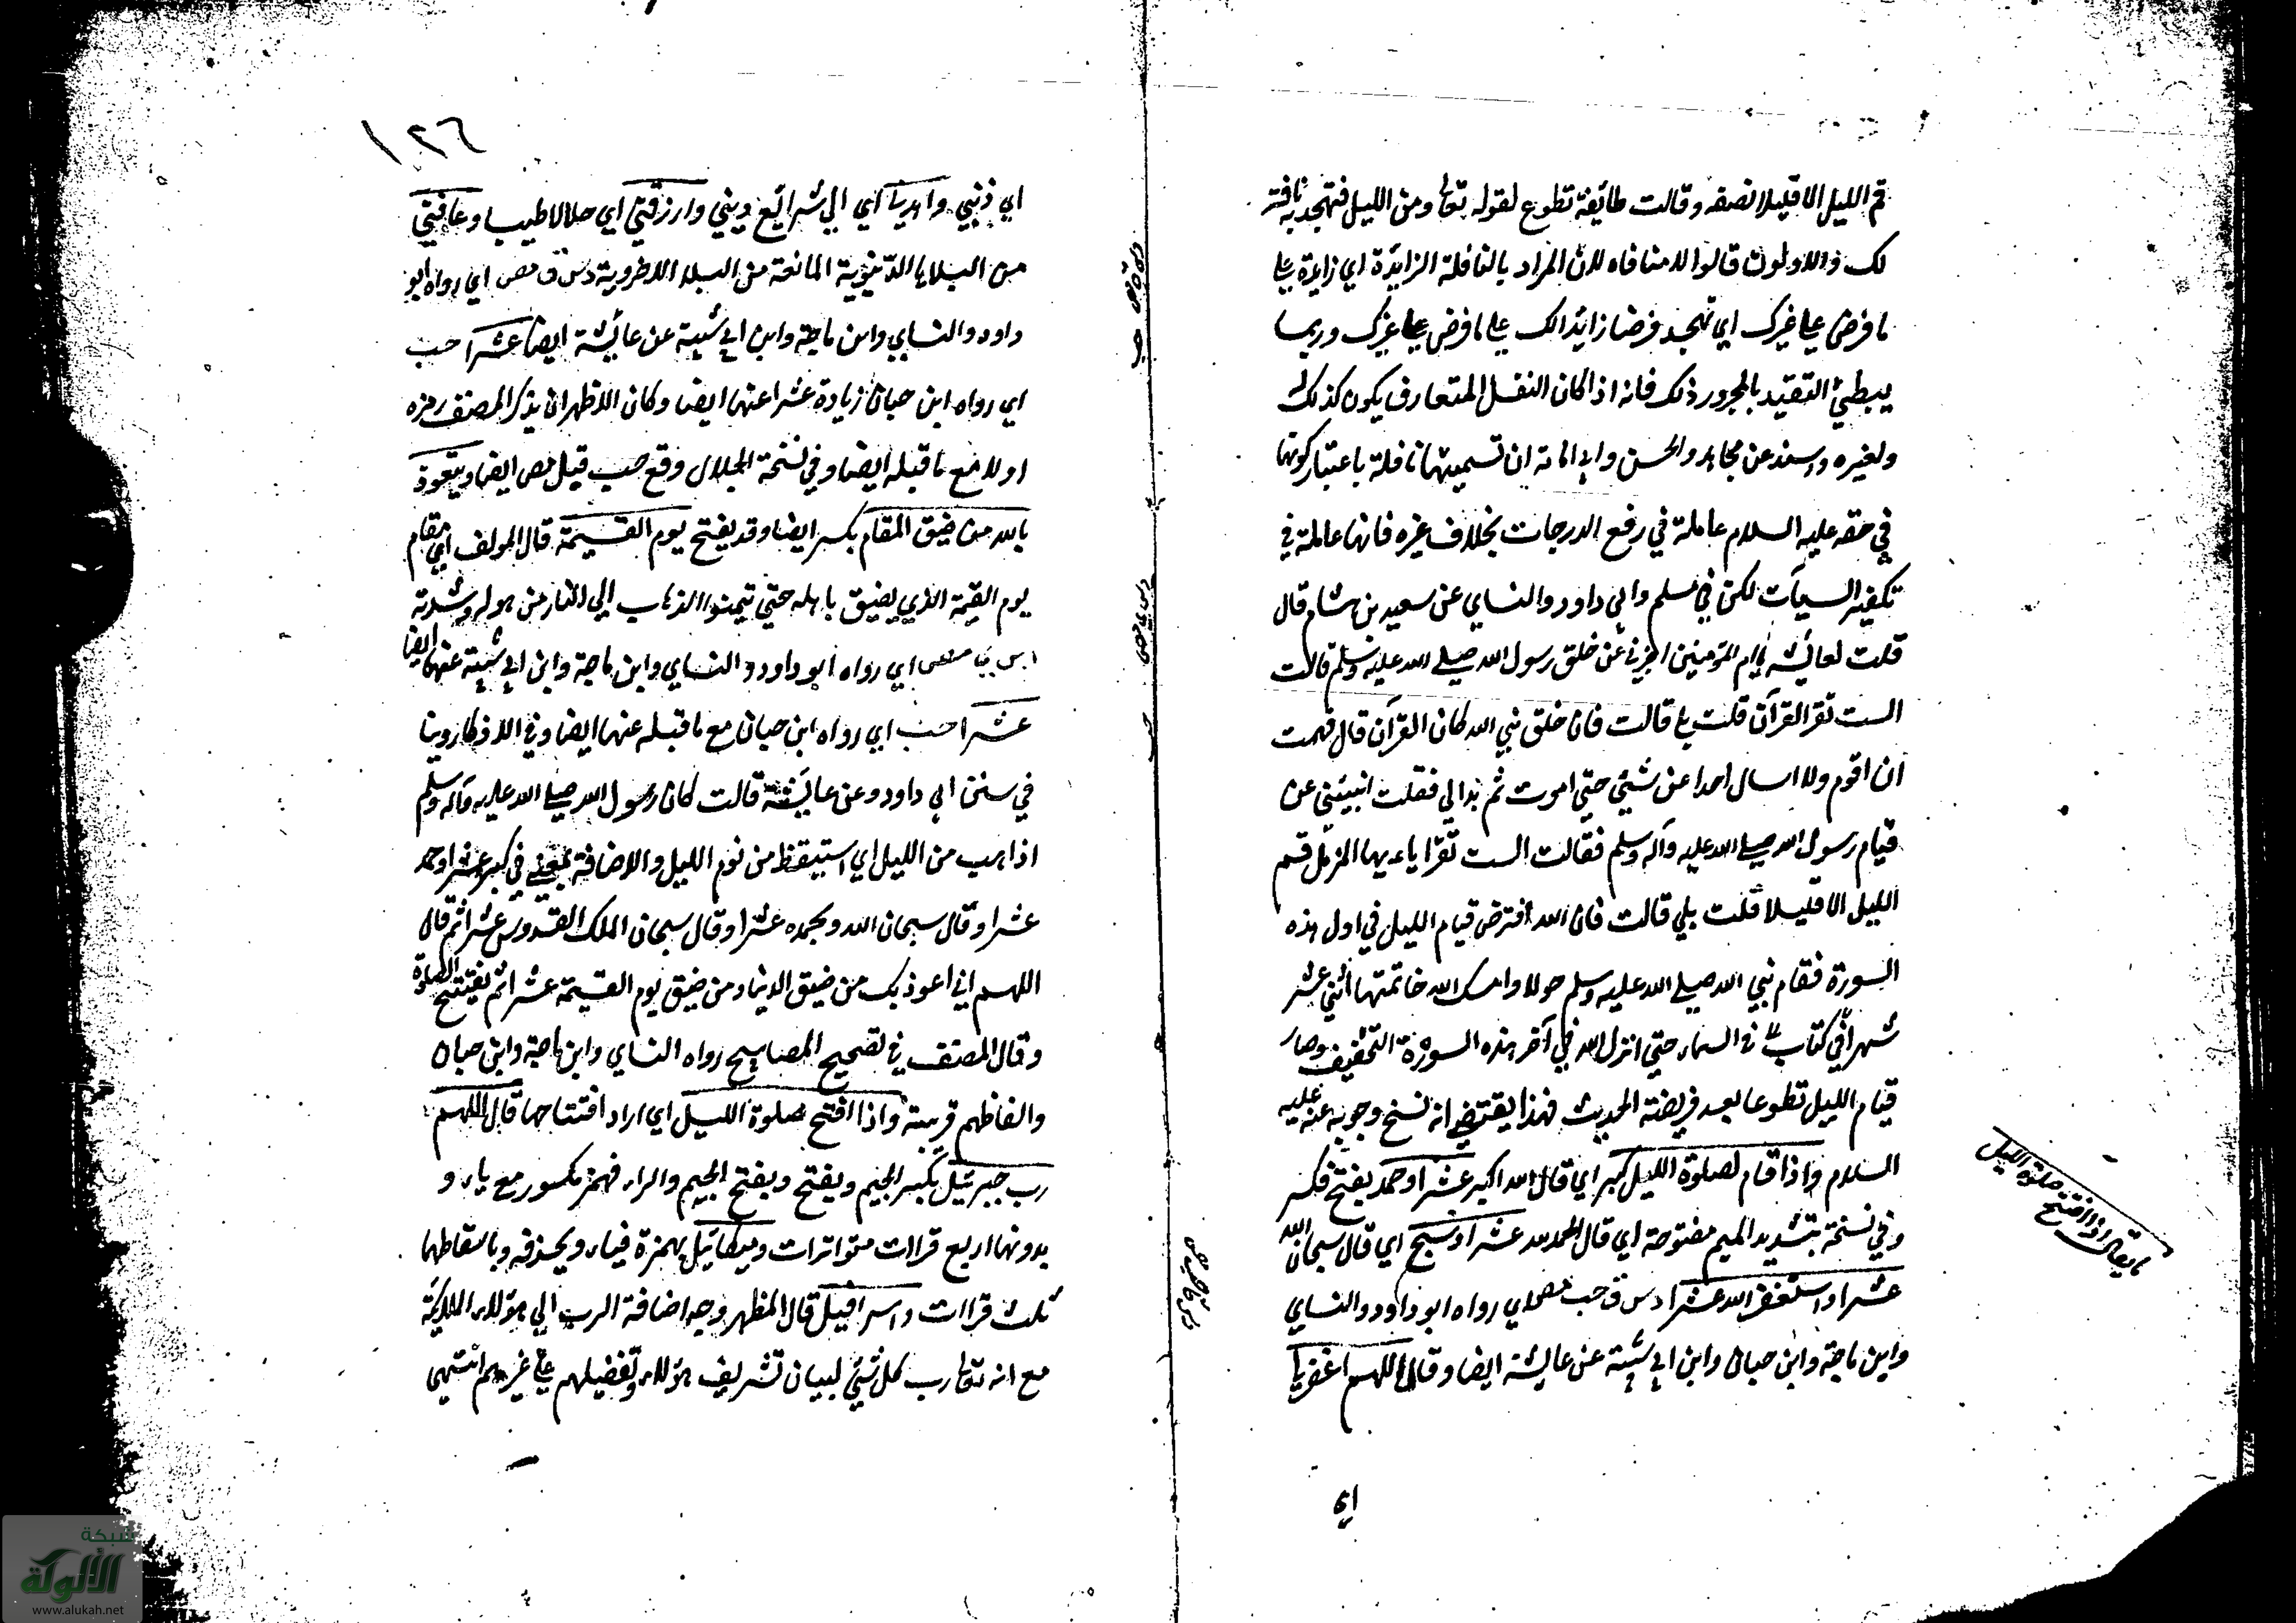 قم الليل الا قليلا نصفه وقالت طائفة تطوع لقوله تعا ومن الليل فتهجد به نافلة
لك والاولون قالوا لا منافاه لان المراد بالنافلة الزائدة اي زايدة علي
ما فرض علي غيرك اي تهجد فرضا زائدا لك علي ما فرض علي غيرك وربما
يبطئ التقيد بالمجرور ذلك فانه اذا كان النفل المتعارف يكون كذلك له
ولغيره واسند عن مجاهد والحسن وابي امامة ان تسميتها نافلة باعتبار كونها
في حقه عليه السلام عاملة في رفع الدرجات بخلاف غيره فانها عاملة في
تكفير السيآت لكن في مسلم وابي داود والنساي عن سعيد بن هشام قال
قلت لعائشه يا ام المؤمنين اخبريني عن خلق رسول الله صلي الله عليه وسلم قالت
الست تقرا القرآن قلت بلي قالت فان خلق نبي الله كان القرآن قال فهمت
ان اقوم ولا اسال احدا عن شيئ حتي اموت ثم بدا لي فقلت انبيئني عن
قيام رسول الله صلي الله عليه وآله وسلم فقالت الست تقرا ياءيها المزمل قم
الليل الا قليلا قلت بلي قالت فان الله افترض قيام الليل في اول هذه
السورة فقام نبي الله صلي الله عليه وسلم حولا وامسك الله خاتمتها اثني عشر
شهرا في كتاب في السماء حتي انزل الله في آخر هذه السورة التخفيف وصار
قيام الليل تطوعا بعد فريضته الحديث فهذا يقتضي انه نسخ وجوبه عنه عليه
السلام واذا قام لصلوة الليل كبر اي قال الله اكبر عشرا وحمد بفتح فكسر
وفي نسخة بتشديد الميم مفتوحة اي قال الحمد لله عشرا وسبح اي قال سبحان الله
عشرا واستغفر الله عشرا دس ق حب مص اي رواه ابو داود والنساي
وابن ماجة وابن حبان وابن ابي شيبة عن عايشة ايضا وقال اللهم اغفر لي
اي
ما يقال اذا افتتح صلوة الليل
١٢٦
اي ذنبي واهدني اي الي شرائع ديني وارزقني اي حلالا طيبا وعافني
من البلايا الدنيوية المانعة من البلاء الاخروية دس ق مص اي رواه ابو
داود والنساي وابن ماجة وابن ابي شيبة عن عائشة ايضا عشرا حب
اي رواه ابن حبان زيادة عشرا عنها ايضا وكان الاظهر ان يذكر المصنف رمزه
اولا مع ما قبله ايضا وفي نسخة الجلال وقع حب قبل مص ايضا ويتعوذ
بالله من ضيق المقام بكسر ايضا وقد يفتح يوم القيمة قال المولف اي مقام
يوم القيمة الذي يضيق باهله حتي يتمنوا الذهاب الي النار من هوله وشدته
دس ق مص اي رواه ابو داود والنساي وابن ماجة وابن ابي شيبة عنها ايضا
عشرا حب اي رواه ابن حبان مع ما قبله عنها ايضا وفي الاذكار روينا
في سنن ابي داود وعن عايشة قالت كان رسول الله صلي الله عليه وآله وسلم
اذا هب من الليل اي استيقظ من نوم الليل والاضافة بمعني في كبر عشرا وحمد
عشرا وقال سبحان الله وبحمده عشرا وقال سبحان الملك القدوس عشرا ثم قال
اللهم اني اعوذ بك من ضيق الدنيا ومن ضيق يوم القيمة عشرا ثم يفتتح الصلوة
وقال المصنف في تصحيح المصابيح رواه النساي وابن ماجة وابن حبان
والفاظهم قريبة واذا افتتح صلوة الليل اي اراد افتتاحها قال اللهم
رب جبرئيل بكسر الجيم ويفتح وبفتح الجيم والراء فهمز مكسور مع ياء و
بدونها اربع قراات متواترات وميكائيل بهمزة فياء وبحذفه وباسقاطهما
ثلث قراات واسرافيل قال المظهر وجه اضافة الرب الي هؤلاء الملائكة
مع انه تعا رب كل شيئ لبيان تشريف هؤلاء وتفضيلهم علي غيرهم انتهي
شبكة
الألوكة
www.alukah.net